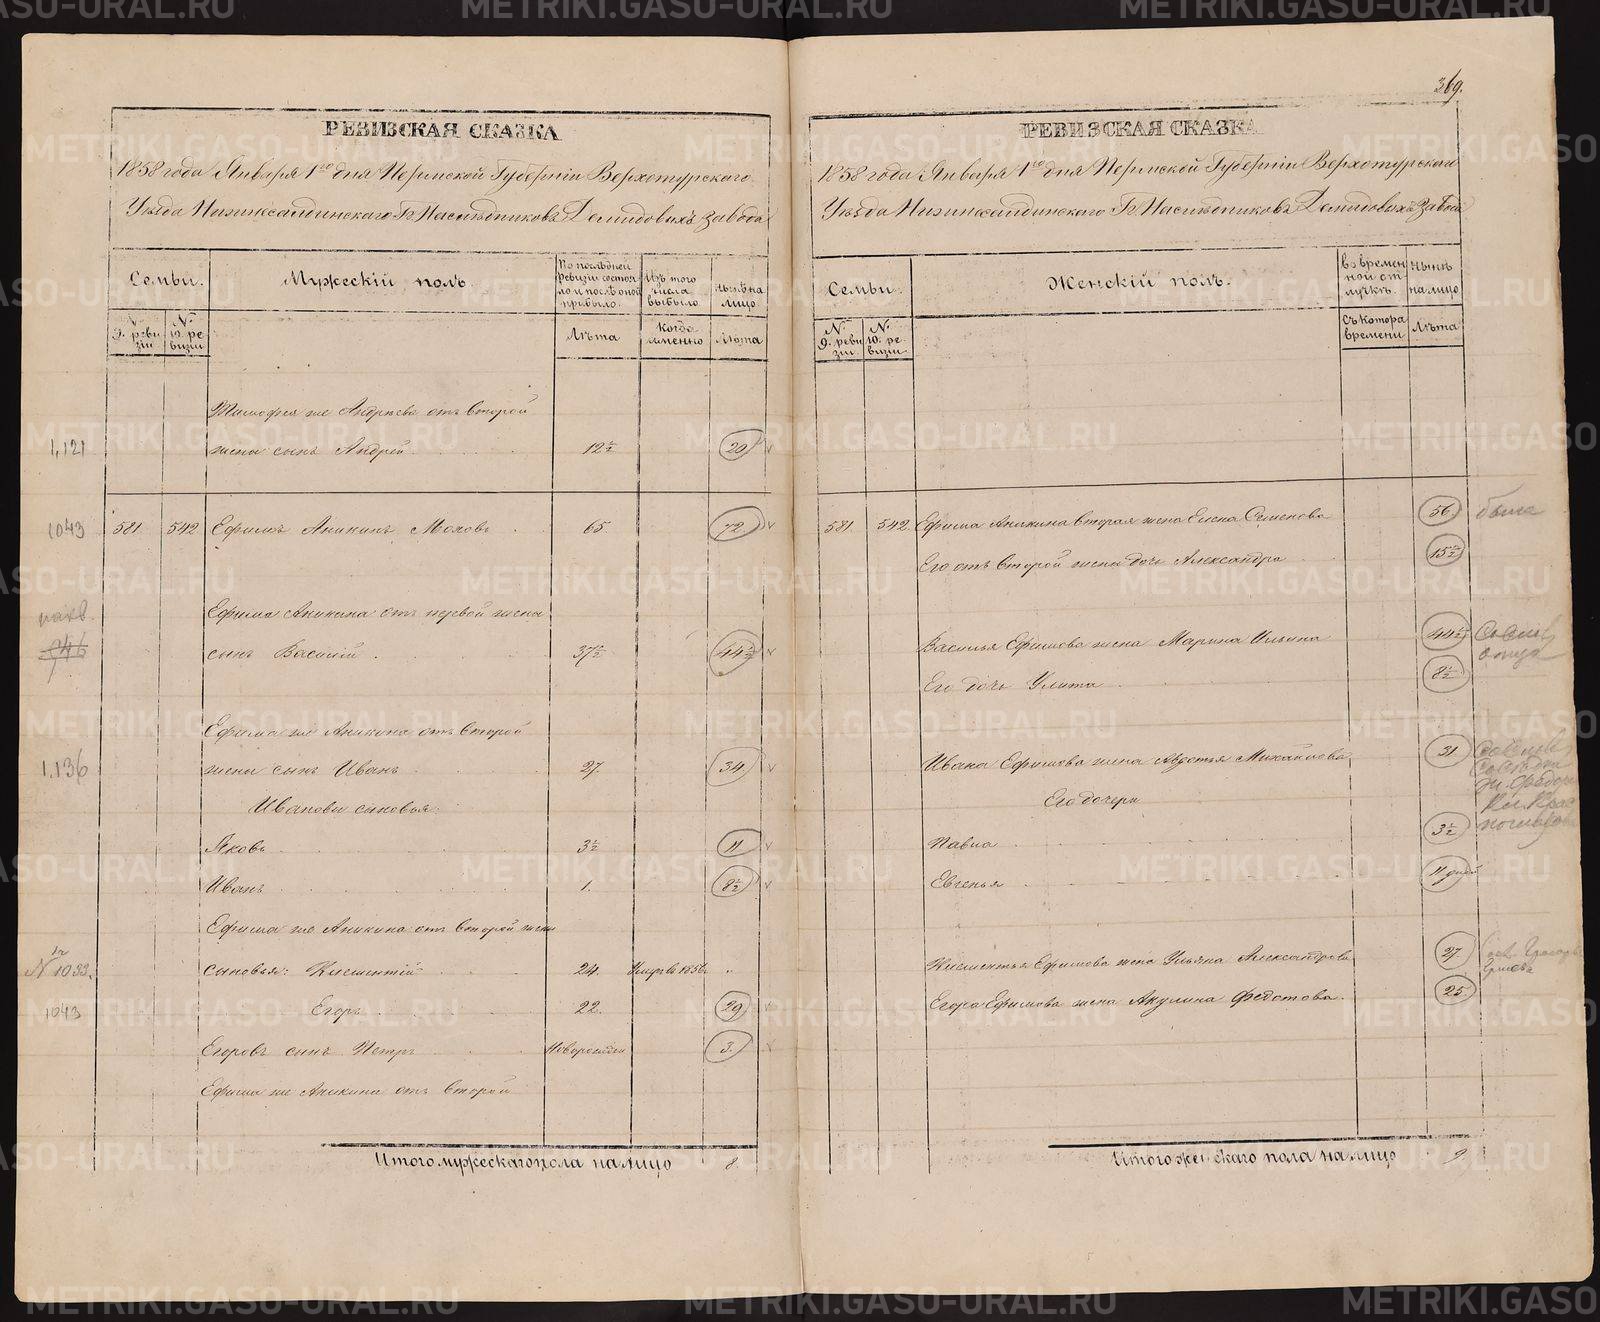 369.
РЕВИЗСКАЯ СКАЗКА
1858 года Января 1го дня Пермской Губерніи Верхотурскаго
Уѣзда Нижнесалдинскаго Гг. Наслѣдниковъ Демидовыхъ завода
Семьи.
Мужескій полъ.
По послѣдней ревизіи состояло и послѣ оной прибыло.
Изъ того числа выбыло
Нынѣ на лицо
№ 9. ревизіи
№ 10. ревизіи
Лѣта
Когда именно
Лѣта
Тимофея же Андреева отъ второй
1,121 жены сынъ Андрей 12½ 20
1043 581. 542 Ефимъ Аникинъ Моховъ 65. 72
Ефима Аникина отъ первой жены
946 сынъ Василій 37½ 44½
Ефима же Аникина отъ второй
1,136 жены сынъ Иванъ 27. 34.
Ивановы сыновья:
Яковъ 3½ 11
Иванъ 1. 8½
Ефима же Аникина отъ второй жены
№ 1033. сыновья: Климентій 24. Умеръ 1856. „
1043 Егоръ 22. 29
Егоровъ сынъ Петръ Новорожден 3.
Ефима же Аникина отъ второй
Итого мужескаго пола на лицо 8.
РЕВИЗСКАЯ СКАЗКА
1858 года Января 1го дня Пермской Губерніи Верхотурскаго
Уѣзда Нижнесалдинскаго Гг. Наслѣдниковъ Демидовыхъ завода
Семьи.
Женскій полъ.
Во временной отлучкѣ.
Нынѣ на лицо
№ 9. ревизіи
№ 10. ревизіи.
Съ котора времени
Лѣта
581 542. Ефима Аникина вторая жена Елена Семенова 56
Его отъ второй жены дочь Александра 15½
Василья Ефимова жена Марина Ильина 44½
Его дочь Улита 8½
Ивана Ефимова жена Авдотья Михайлова 31
Его дочери
Павла 3½
Евгенья 11 дней
Климентья Ефимова жена Ульяна Александрова 27
Егора Ефимова жена Акулина Федотова. 25
Итого женскаго пола на лицо 9
METRIKI.GASO-URAL.RU